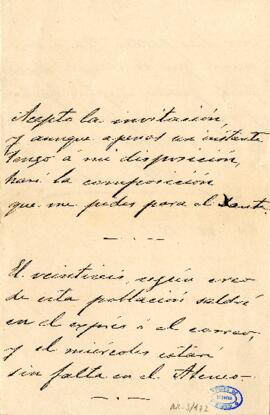 Acepto la invitación,
y aunque apenas un instante
tengo á mi disposición,
haré la composición
que me pides para el
El veintiseis, según creo
de esta población saldré
en el exprés ó el correo,
y el miércoles estaré
sin falta en el Ateneo.